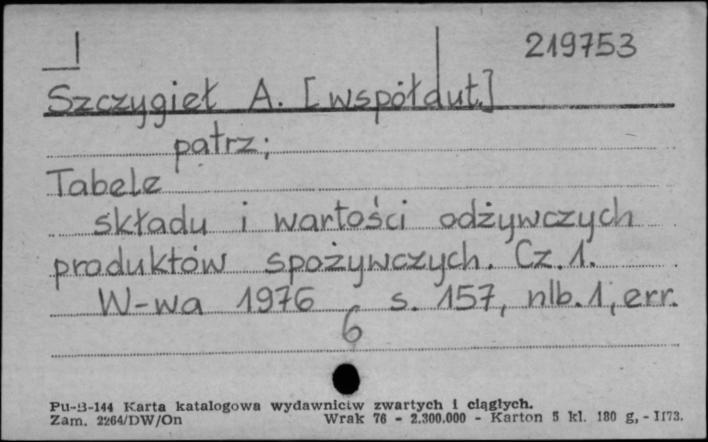 219753
Szczygieł A. [współaut.]
patrz;
Tabele
składu i wartości odżywczych
produktów spożywczych. Cz. 1.
W-wa 1976 s. 157, nlb. 1, err.
6
Pu-B-144 Karta katalogowa wydawnictw zwartych i ciągłych.
Zam. 2264/DW/On Wrak 76 - 2.300.000 - Karton 5 kl. 180 g, - 1173.